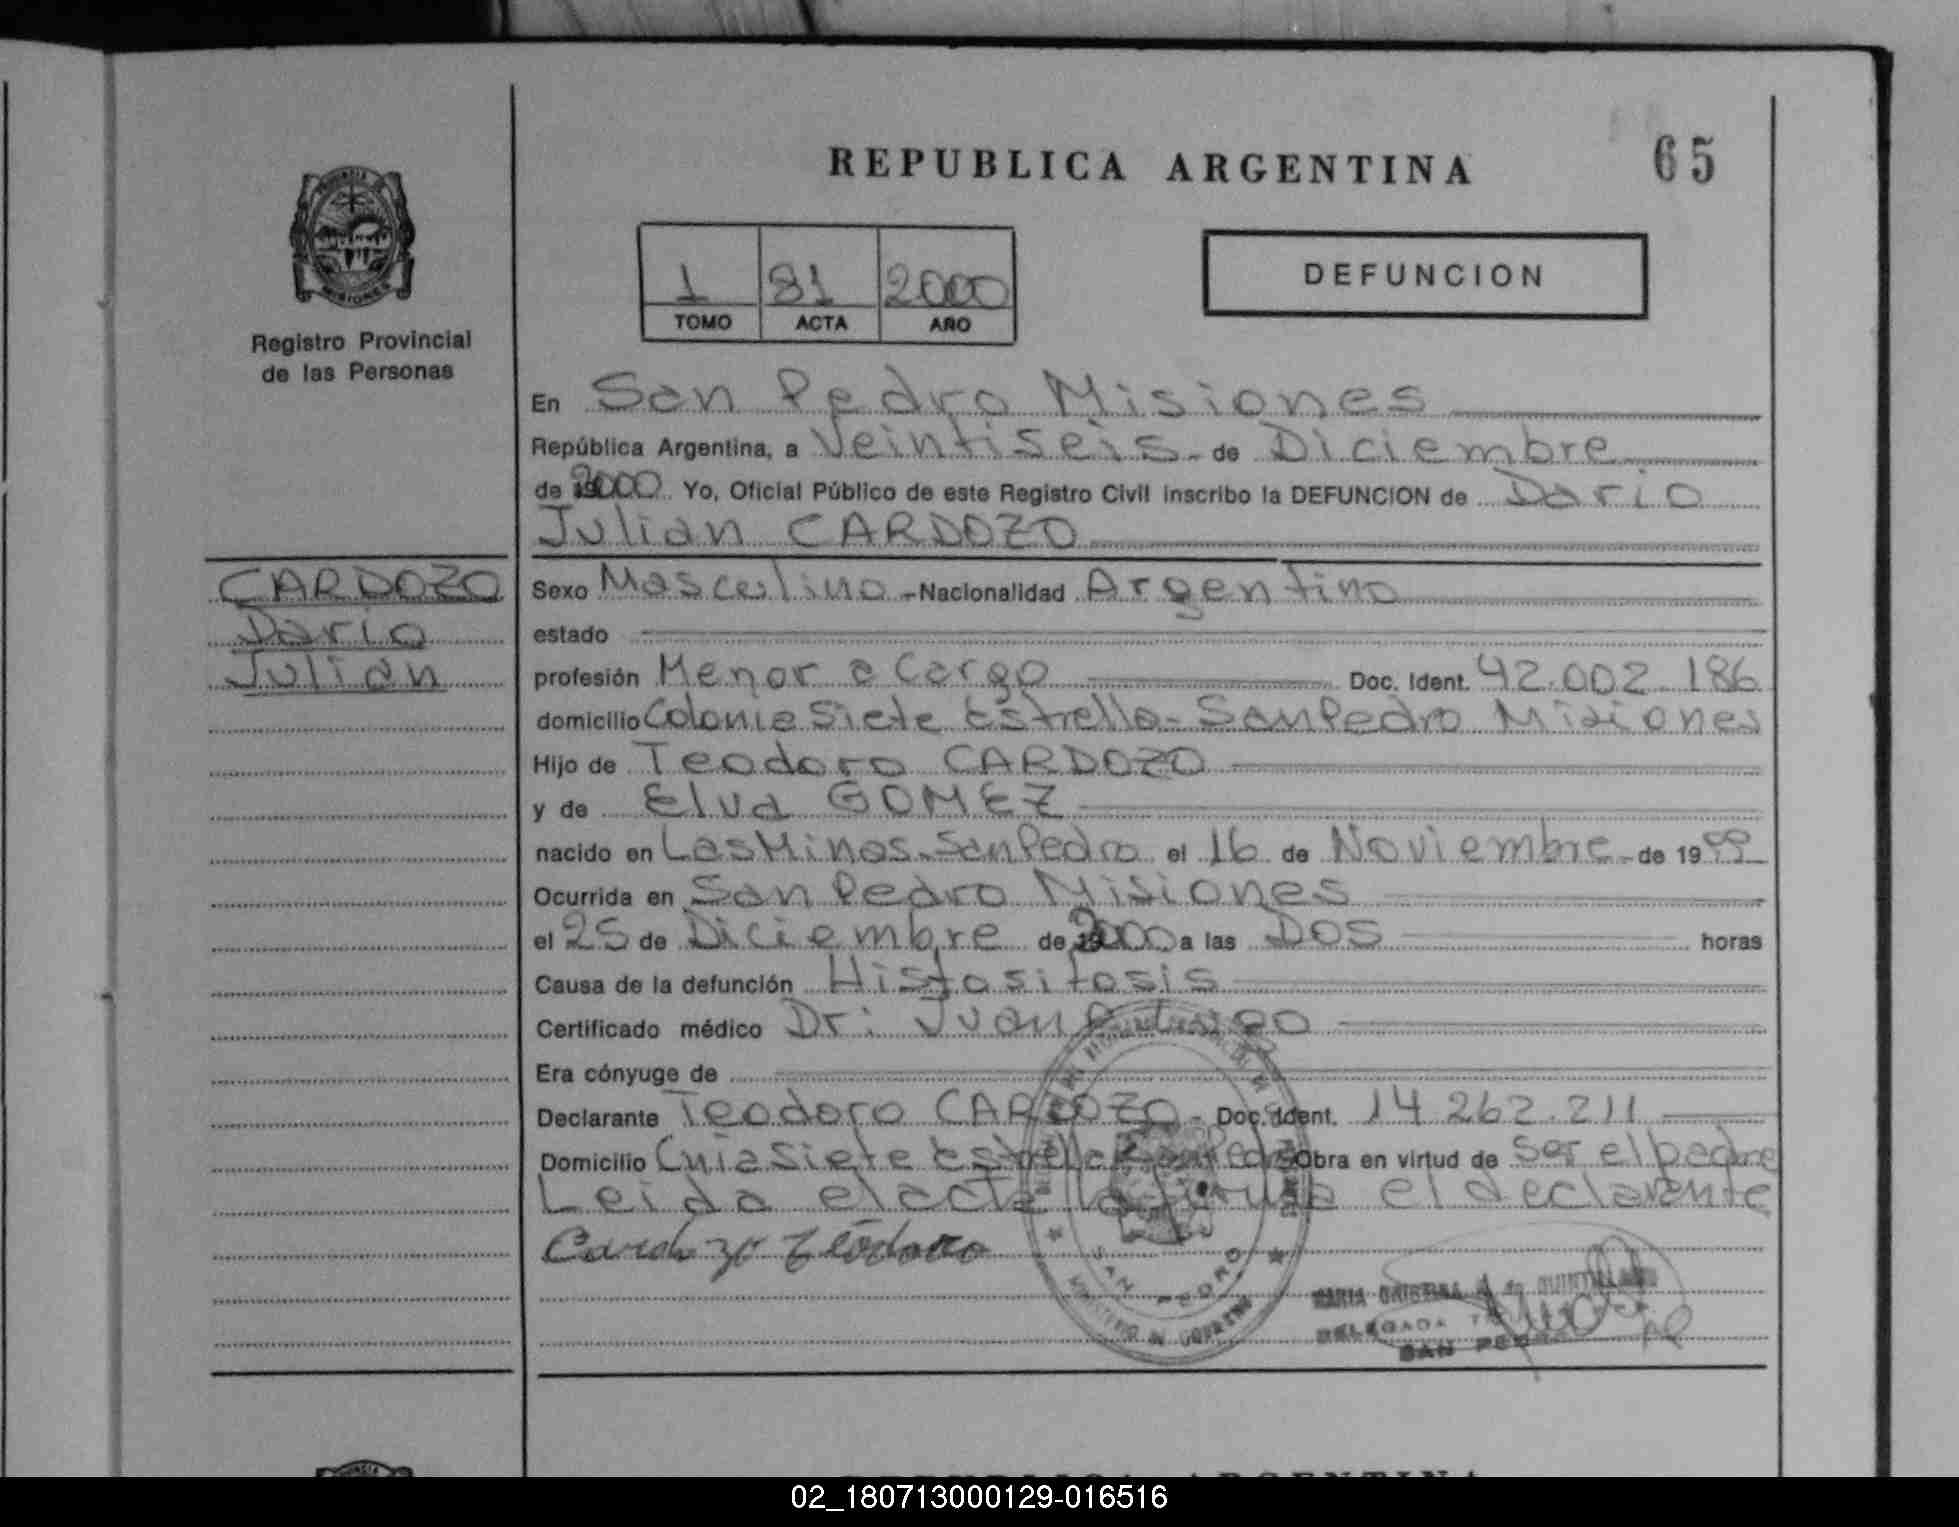 REPUBLICA ARGENTINA
65
PROVINCIA DE
MISIONES
Registro Provincial
de las Personas
1 81 2000
TOMO ACTA AÑO
DEFUNCION
En San Pedro Misiones
República Argentina, a Veintiseis de Diciembre
de 2000 Yo, Oficial Público de este Registro Civil inscribo la DEFUNCION de Dario
Julian CARDOZO
CARDOZO
Dario
Julian
Sexo Masculino - Nacionalidad Argentino
estado
profesión Menor a Cargo Doc. Ident. 42.002.186
domicilio Colonia Siete Estrella - San Pedro Misiones
Hijo de Teodoro CARDOZO
y de Elva GOMEZ
nacido en Las Minas - San Pedro el 16 de Noviembre - de 1999
Ocurrida en San Pedro Misiones
el 25 de Diciembre de 2000 a las Dos horas
Causa de la defunción Histositosis
Certificado médico Dr: Juan
Era cónyuge de
Declarante Teodoro CARDOZO - Doc. Ident. 14.262.211
Domicilio Cnia Siete Estrella San Pedro Obra en virtud de ser el padre
Leida el acta la firma el declarante
Cardozo Teodoro
SAN PEDRO
MINISTERIO DE GOBIERNO
MARIA CRISTINA A. de QUINTILLAN
DELEGADA
SAN PEDRO
REPUBLICA ARGENTINA
02_180713000129-016516